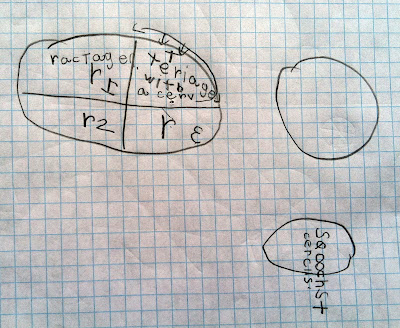 racTagel
r1
T
Yeriagel
with
a cerv
r2
r 3
Sqooohst
cercils